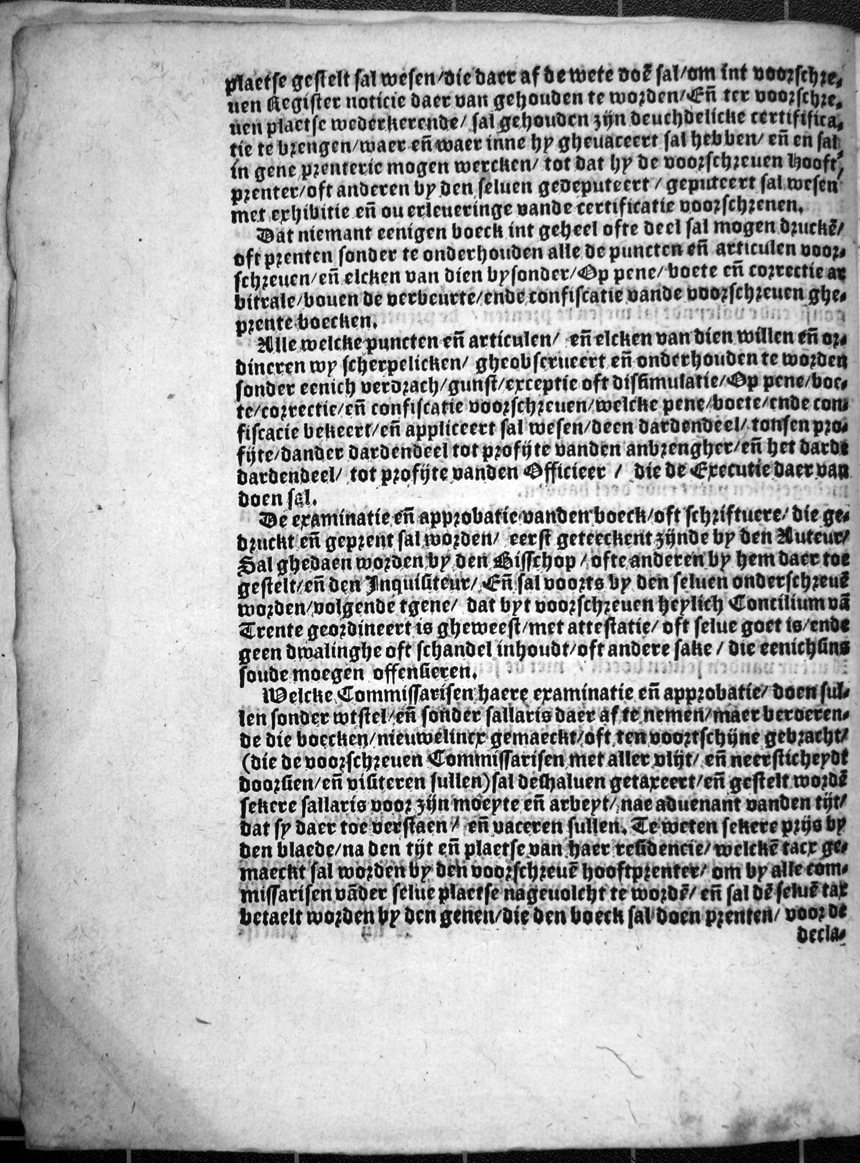 plaetse gestelt sal wesen/die daer af de wete doē sal/om int voorschre-
uen Register noticie daer van gehouden te worden/Eñ ter voorschre-
uen plaetse wederkerende/ sal gehouden zijn deuchdelicke certififica-
tie te brengen/waer eñ waer inne hy gheuaceert sal hebben/ eñ en sal
in gene prenterie mogen wercken/ tot dat hy de voorschreuen Hooft-
prenter/oft anderen by den seluen gedeputeert / geputeert sal wesen
met exhibitie eñ ouerleueringe vande certificatie voorschreuen.
Dat niemant eenigen boeck int geheel ofte deel sal mogen druckē/
oft prenten sonder te onderhouden alle de puncten eñ articulen voor-
schreuen/eñ elcken van dien bysonder/Op pene/ boete eñ correctie ar
bitrale/bouen de verbeurte/ende confiscatie vande voorschreuen ghe-
prente boecken.
Alle welcke puncten eñ articulen/ eñ elcken van dien willen eñ or-
dineren wy scherpelicken/ gheobserueert eñ onderhouden te worden
sonder eenich verdrach/gunst/exceptie oft dissimulatie/Op pene/boe-
te/correctie/eñ confiscatie voorschreuen/welcke pene/boete/ende con-
fiscacie bekeert/eñ appliceert sal wesen/deen dardendeel/ tonsen pro-
fijte/dander dardendeel tot profijte vanden anbrengher/eñ het darde
dardendeel/ tot profijte vanden Officieer / die de Executie daer van
doen sal.
De examinatie eñ approbatie vanden boeck/oft schriftuere/ die ge-
druckt eñ geprent sal worden/ eerst geteeckent zijnde by den Auteur/
Sal ghedaen worden by den Bisschop / ofte anderen by hem daer toe
gestelt/eñ den Inquisiteur/ Eñ sal voorts by den seluen onderschreuē
worden/volgende tgene/ dat byt voorschreuen heylich Concilium vā
Trente geordineert is gheweest/met attestatie/ oft selue goet is/ende
geen dwalinghe oft schandel inhoudt/oft andere sake / die eenichsins
soude moegen offensieren.
Welcke Commissarisen haere examinatie eñ approbatie/ doen sul-
len sonder wtstel/eñ sonder sallaris daer af te nemen/maer beroeren-
de die boecken/nieuwelincx gemaeckt/oft ten voortschijne gebracht/
(die de voorschreuen Commissarisen met aller vlijt/ eñ neersticheydt
doorsien/eñ visiteren sullen)sal deshaluen getaxeert/eñ gestelt wordē
sekere sallaris voor zijn moeyte eñ arbeyt/nae aduenant vanden tijt/
dat sy daer toe verstaen / eñ vaceren sullen. Te weten sekere prijs by
den blaede/na den tijt eñ plaetse van haer residencie/welckē tacx ge-
maeckt sal worden by den voorschreuē hooftprenter/ om by alle com-
missarisen vāder selue plaetse nageuolcht te wordē/ eñ sal dē seluē tax
betaelt worden by den genen/die den boeck sal doen prenten/ voor de
decla-